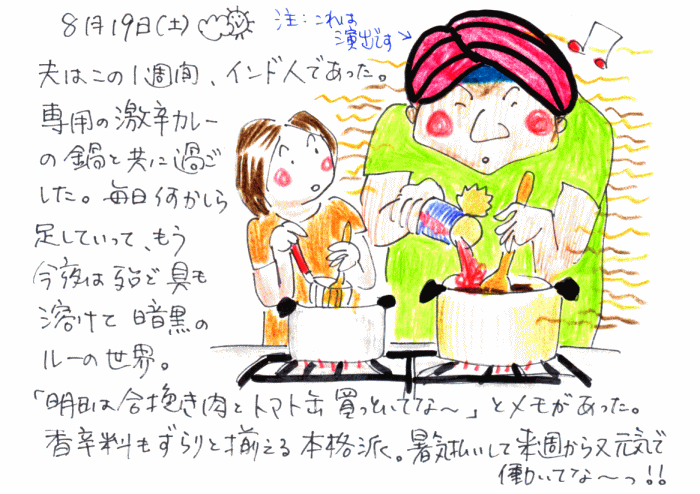 8月19日(土)
注:これは
演出です
夫はこの1週間、インド人であった。
専用の激辛カレー
の鍋と共に過ご
した。毎日何かしら
足していって、もう
今夜は殆ど具も
溶けて暗黒の
ルーの世界。
「明日は合挽き肉とトマト缶買っといてな〜」とメモがあった。
香辛料もずらりと揃える本格派。暑気払いして来週から又元気で
働いてな〜っ!!